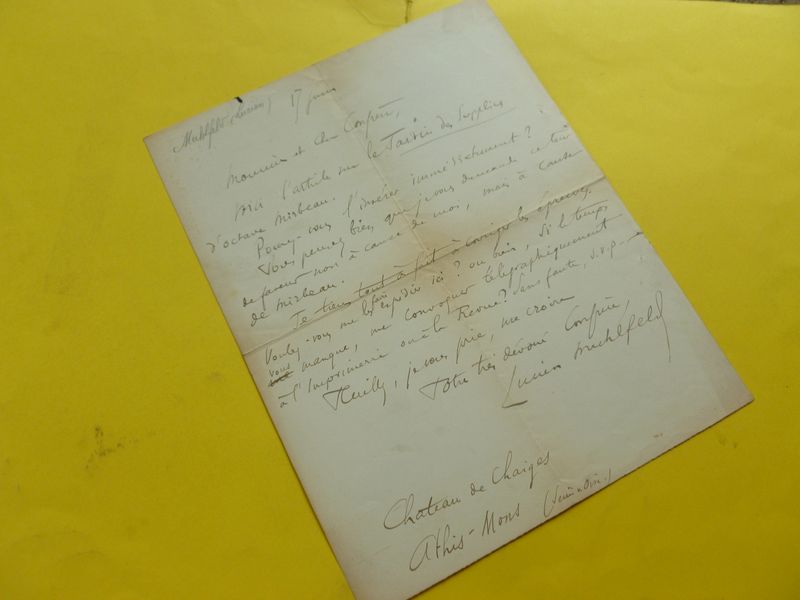 Muhlfeld (Lucien) 17 juin
Monsieur et cher Confrère,
Voici l'article sur le Jardin des Supplices
d'Octave Mirbeau.
Pouvez-vous l'insérer immédiatement ?
Vous pensez bien que je vous demande ce tour
de faveur non à cause de moi, mais à cause
de Mirbeau.
Je tiens tout à fait à corriger les épreuves.
Voulez-vous me les faire expédier ici ? ou bien, si le temps
vous manque, me convoquer télégraphiquement
à l'Imprimerie ou à la Revue ? Sans faute, s.v.p.
Veuillez, je vous prie, me croire
Votre très dévoué Confrère,
Lucien Muhlfeld
Château de Chaiges
Athis-Mons (Seine & Oise.)